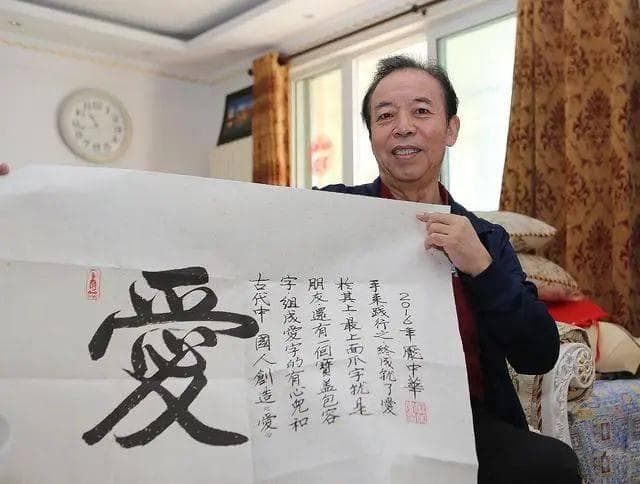 愛
古代中國人創造“愛”
字.組成愛字的有心兒和
朋友.還有一個寶蓋包容
於其上最上面爪字就是
手來踐行之終成就了愛
2016年龐中華